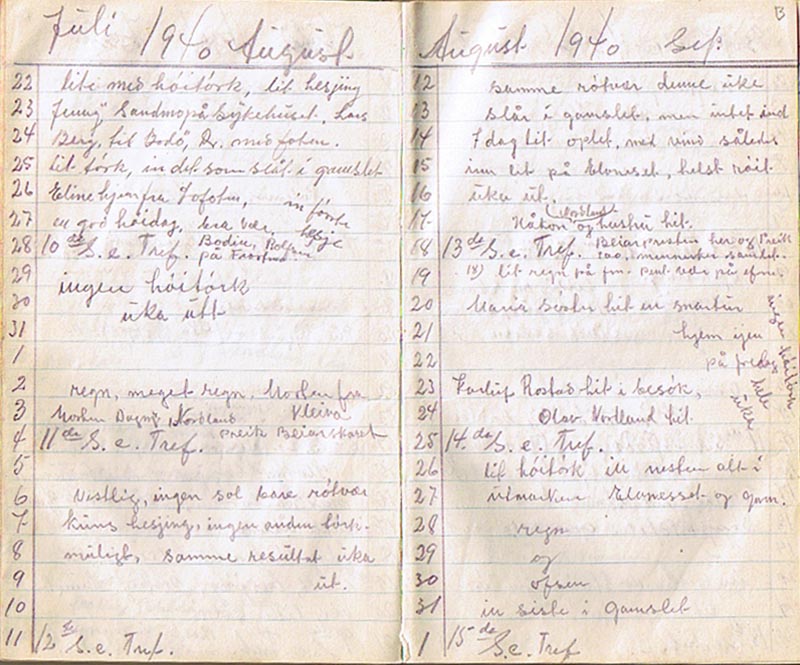 Juli 1940 August
22 lite med höitörk, lit hesjing
23 Jenny Sandmo på Sykehuset. Lars
24 Berg, til Bodö, Dr. mis foten.
25 lit törk, in det som slåt i gamslet
26 Eline hjem fra Fofoten, in förte
27 en god höidag, bra vær, hesje
28 10 de S. e. Tref. Bodin,
på
29 ingen höitörk
30 uka ut
31
1
2 regn, meget regn, Morten fra
3 Morten Dagny Nordland Kleiva
4 11 de S. e. Tref. Preik Beiarskaret
5
6 Vestlig, ingen sol bare rötvær
7 kuns hesjing, ingen anden törk
8 muligt, samme resultat uka
9 ut.
10
11 12 te S. e. Tref.
August 1940 Sep. B
12 samme rötvær denne uke
13 slår i gamslet, men intet ind
14 I dag lit oplet, med vind således
15 inn lit på Elvneset, helst röit
16 uka ut.
17 Håkon Nordland og hustru hit.
18 13 de S. e. Tref. Beiarpresten her og Preik
200. mennesker samlet.
19 18) lit regn på fm. pent vær på efm.
20 Maria söster hit en snartur
21 hjem igen
22 på fredag
ingen höitörk
hele
uke
23 Rostad hit i besök,
24 Olav Nordland hit.
25 14. de S. e. Tref.
26 lit höitörk in nesten alt i
27 utmarken Elvnesset og gam.
28 regn
29 og
30 ofsen
31 in siste i gamslet
1 15 de S. e. Tref